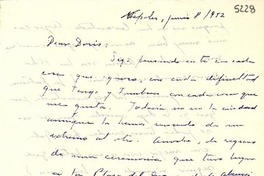 5228
Nápoles, junio 8/952
Dear Doris:
Sigo pensando en ti en cada
cosa que quiero, con cada dificultad
que tengo y también con cada cosa que
me gusta. Todavía no en la ciudad
aunque la he recorrido de un
extremo al otro. Anoche, de regreso
de una ceremonia que tuvo lugar
en la